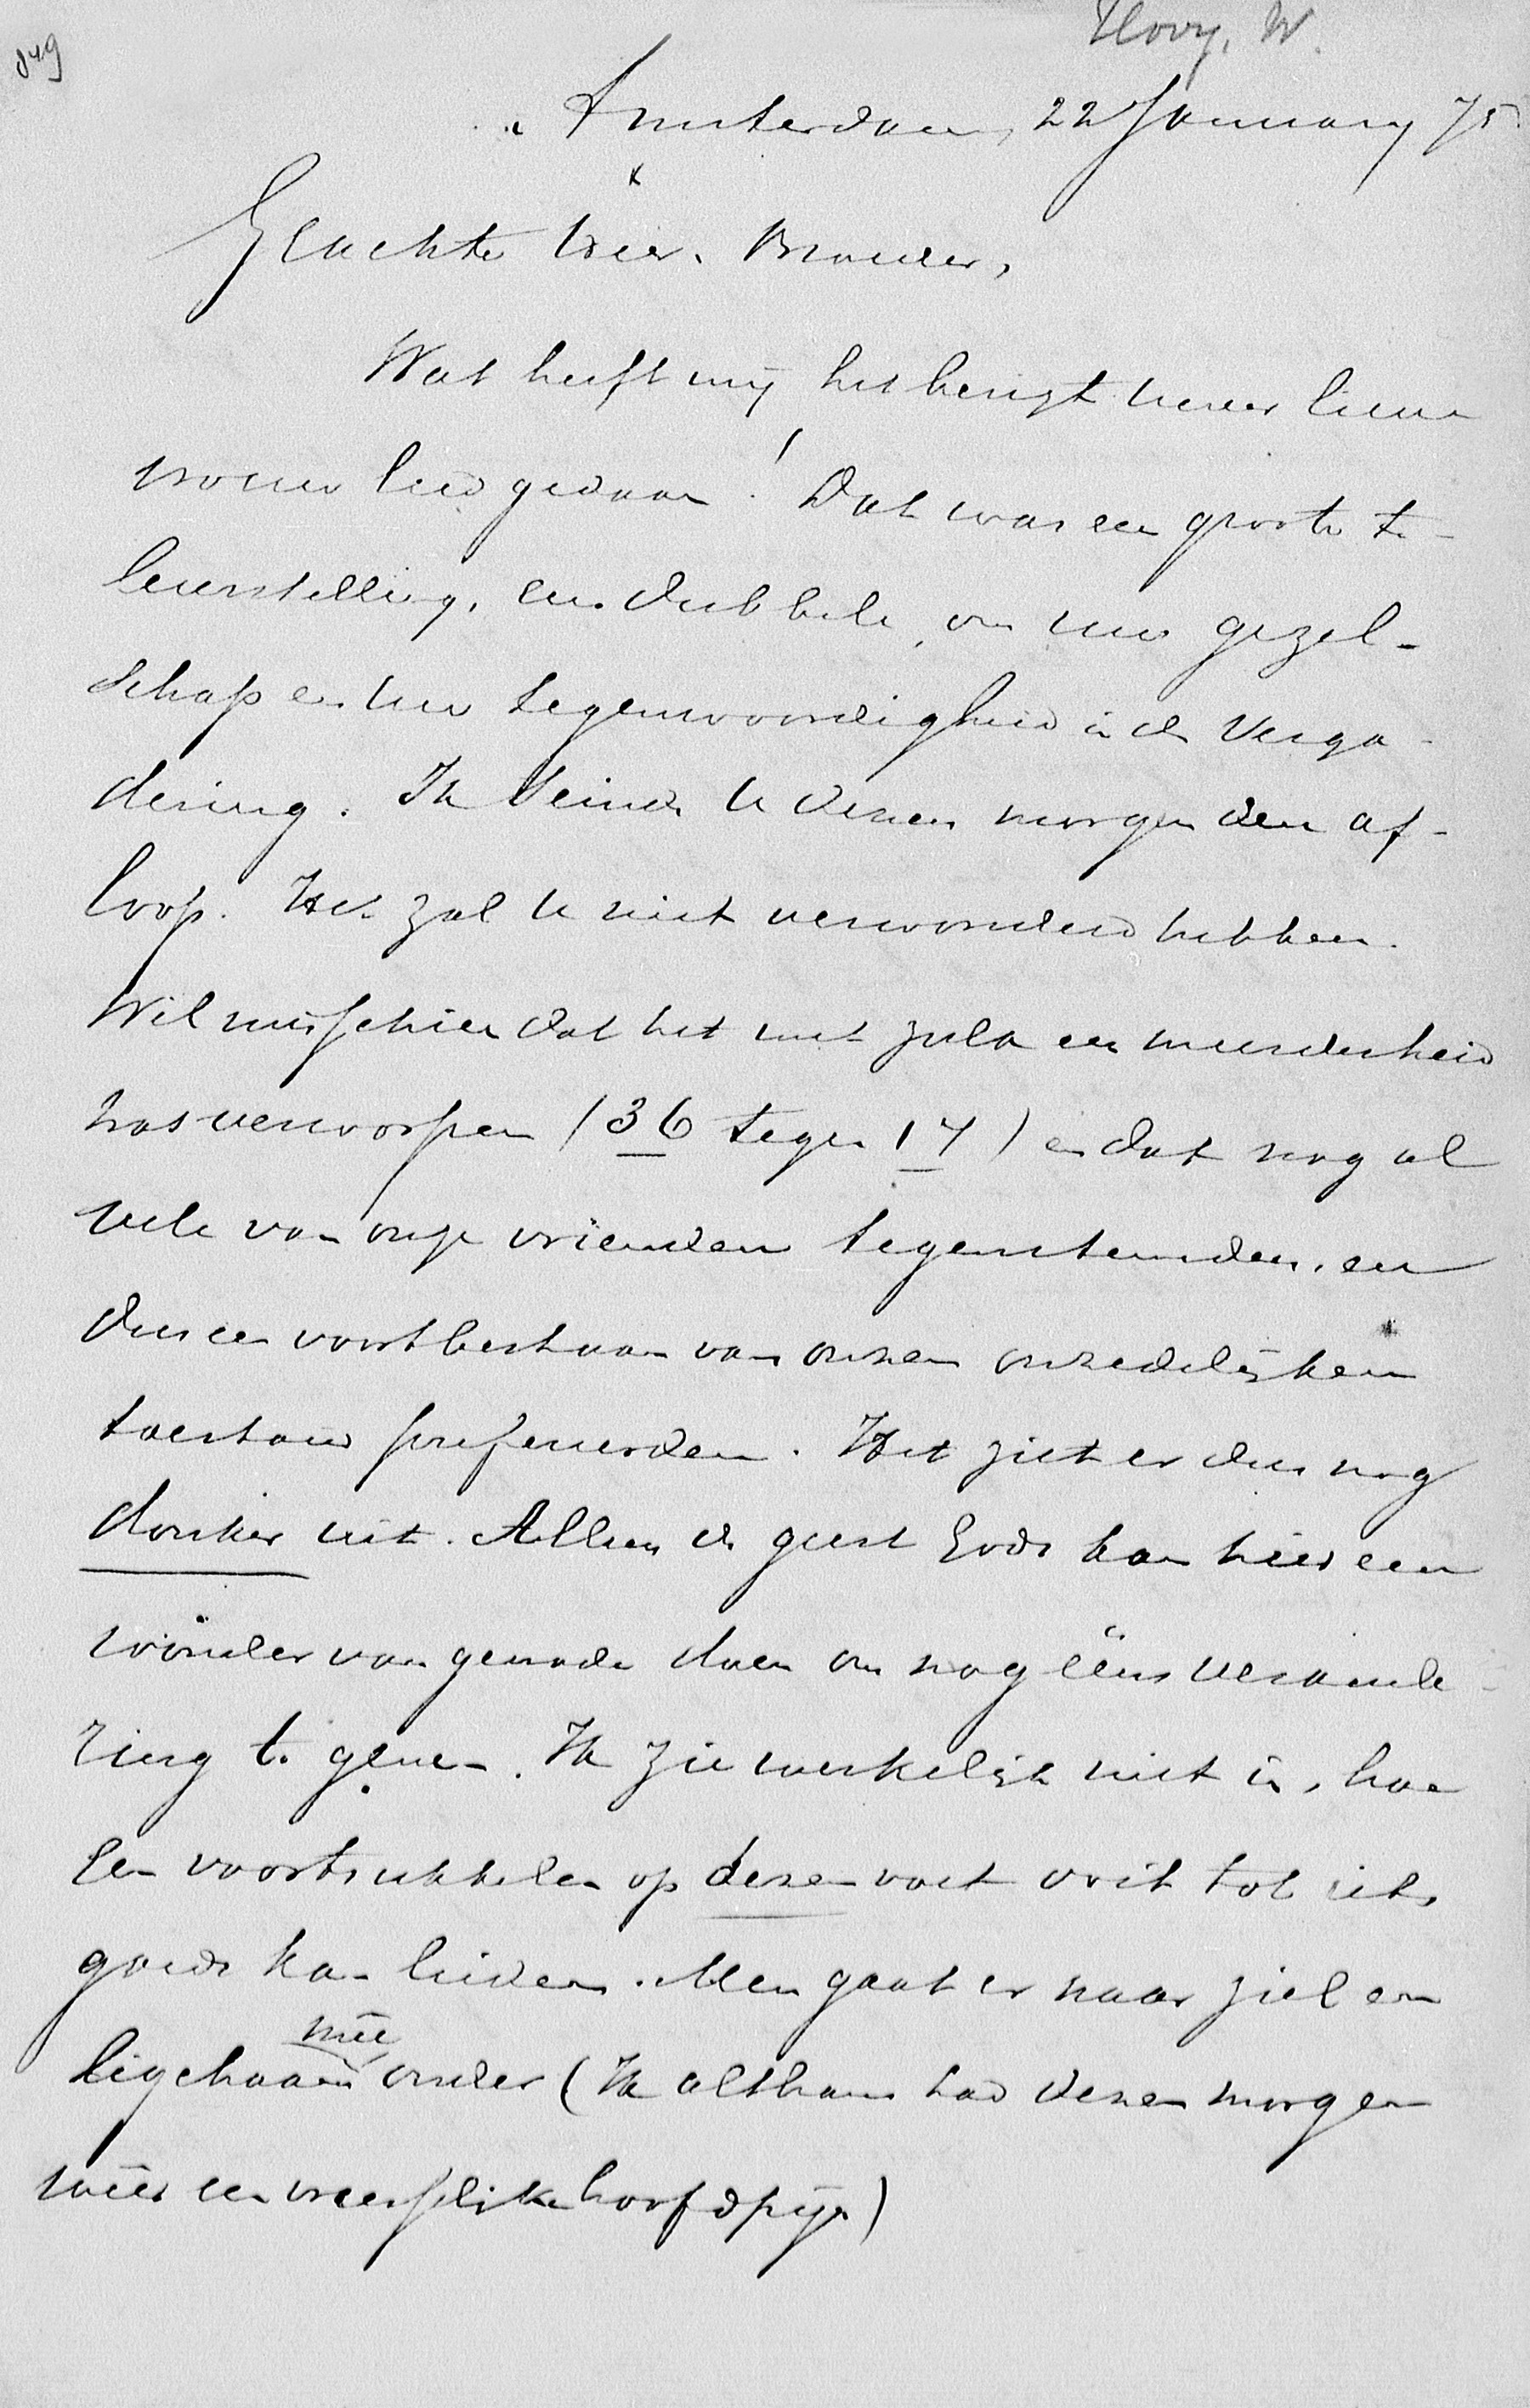 Hovy, W.
849
Amsterdam, 22 January 75
Geachte Vier. Broeder,
Wat heeft mij het berigt uwer lieve
vrouw leed gedaan! Dat was een groote te-
leurstelling, een dubbele, om uw gezel-
schap en uw tegenwoordigheid in de Verga-
dering. Ik seinde U dezen morgen den af-
loop. Het zal U niet verwonderd hebben.
Wel misschien dat het met zulk een meerderheid
was verworpen (36 tegen 17) en dat nog al
vele van onze vrienden tegenstemden, en
dus een voortbestaan van onzen onzedelijken
toestand prefereerden. Het ziet er dus nog
donker uit. Alleen de geest Gods kan hier een
wonder van genade doen om nog ééns verande-
ring te geven. Ik zie werkelijk niet in, hoe
een voortsukkelen op dezen voet ooit tot iets
goeds kan leiden. Men gaat er naar ziel en
ligchaam meê onder (Ik althans had dezen morgen
weêr een vreesselijke hoofdpijn)